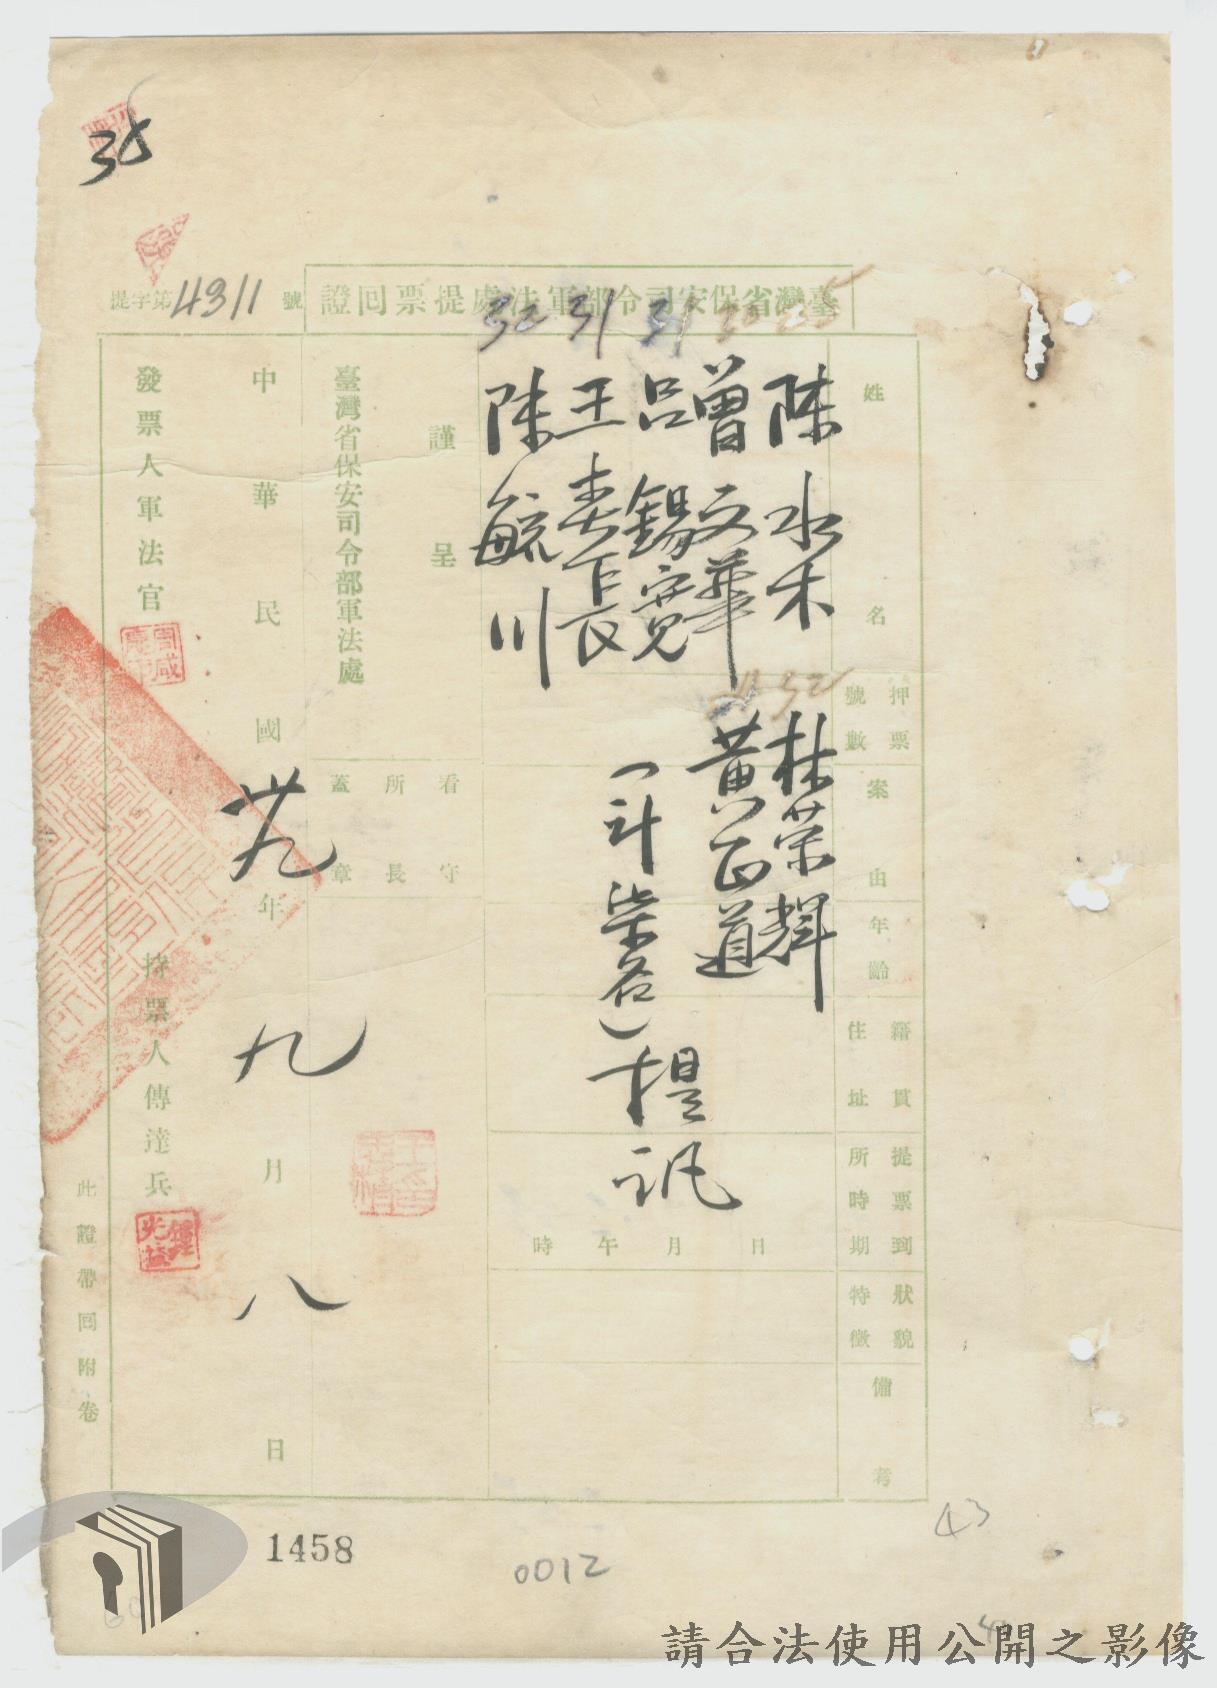 35
臺灣省保安司令部軍法處提票回證
提字第4311號
姓名
押票號數
案由
年齡
籍貫住址
提票到所時期
狀貌特徵
備考
陳水木
林荣輝
曾文華
黃正道
呂錫寬
王春長
陳毓川
31
31
32
32
(計柒名)提訊
日月午時
謹呈
臺灣省保安司令部軍法處
看守所長蓋章
中華民國卅九年九月八日
發票人軍法官
持票人傳達兵
鍾光益
此證帶回附卷
1458
0012
43
請合法使用公開之影像